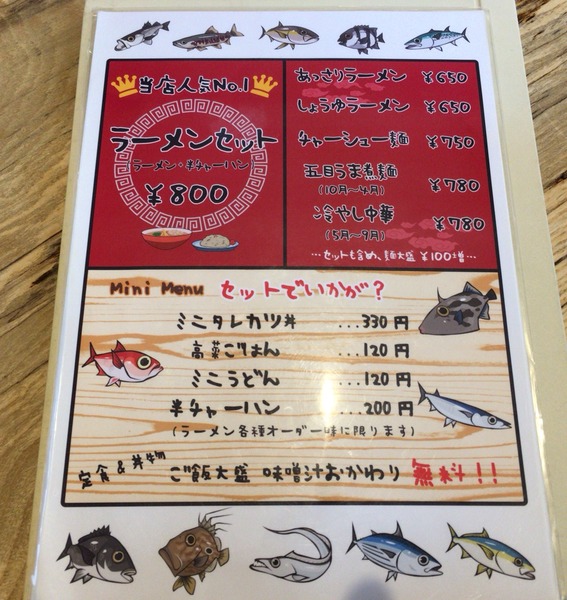 当店人気No.1
ラーメンセット
(ラーメン・半チャーハン)
¥800
あっさりラーメン ¥650
しょうゆラーメン ¥650
チャーシュー麺 ¥750
五目うま煮麺 ¥780
(10月〜4月)
冷やし中華 ¥780
(5月〜9月)
…セットも含め、麺大盛 ¥100増…
Mini Menu セットでいかが?
ミニタレカツ丼 ...330円
高菜ごはん ...120円
ミニうどん ...120円
半チャーハン ...200円
(ラーメン各種オーダー時に限ります)
定食&丼物 ご飯大盛 味噌汁おかわり 無料!!